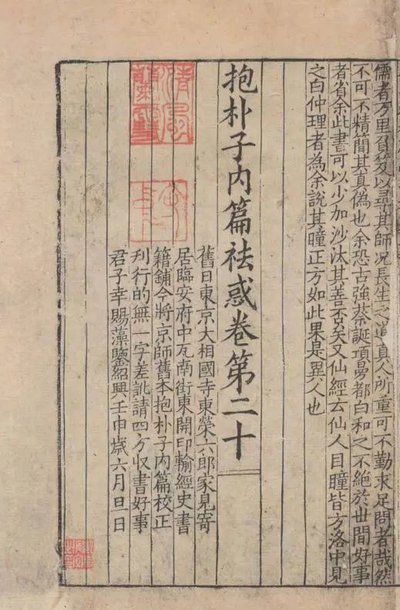 儒者万里負笈以尋其師况長生之道真人所重可不勤求足問者哉然
不可不精簡其真偽也余恐古強蔡誕項曼都白和之不絶於世間好事
者省余此書可以少加沙汰其善否矣又仙經云仙人目瞳皆方洛中見
之白仲理者為余說其瞳正方如此果是異人也
抱朴子内篇祛惑卷第二十
舊日東京大相國寺東榮六郎家見寄
居臨安府中瓦南街東開印輸經史書
籍鋪今將京師舊本抱朴子内篇校正
刋行的無一字差訛請四方收書好事
君子幸賜藻鑒紹興壬申歲六月旦日